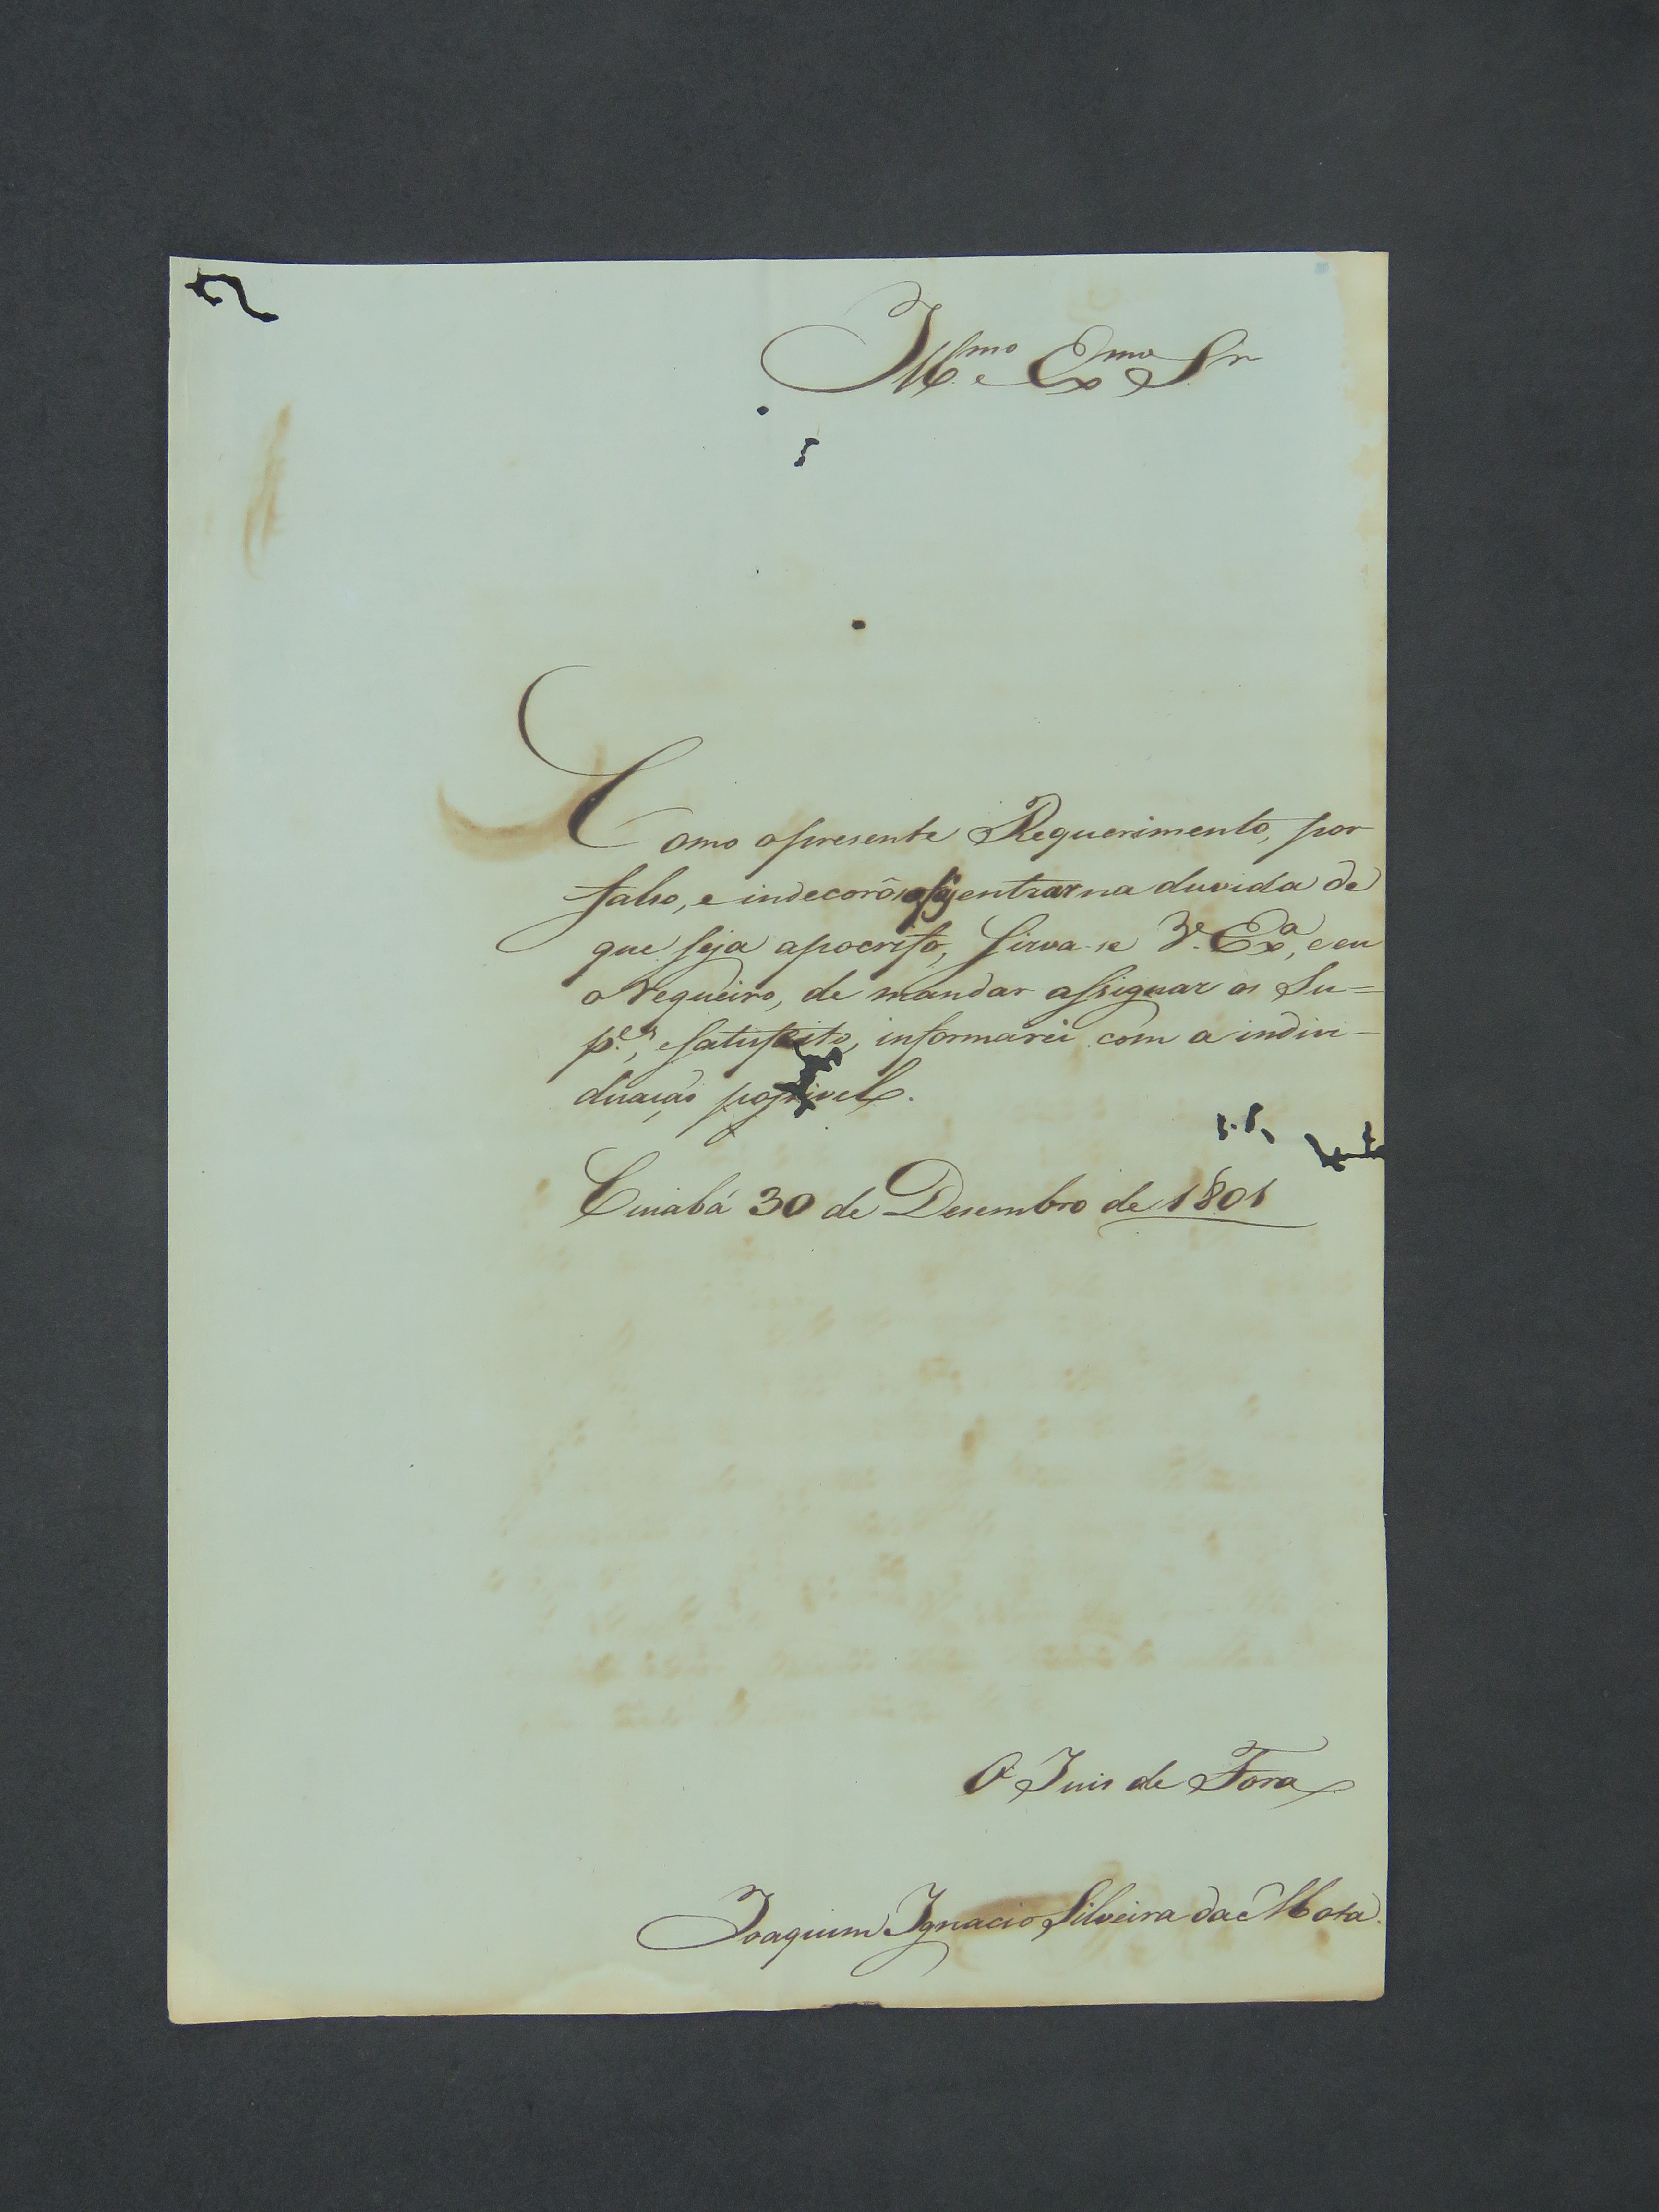 Ill.mo e Ex.mo Sr
Como o presente Requerimento, por
falso, e indecorôso faz entrar na duvida de
que seja apocrifo, sirva-se V.e Ex.a, e eu
o requeiro, de mandar assignar os Su=
p.es, e satisfeito, informarei com a indivi-
duação possivel.
Cuiabá 30 de Desembro de 1801
O Juis de Fora
Joaquim Ignacio Silveira da Mota.